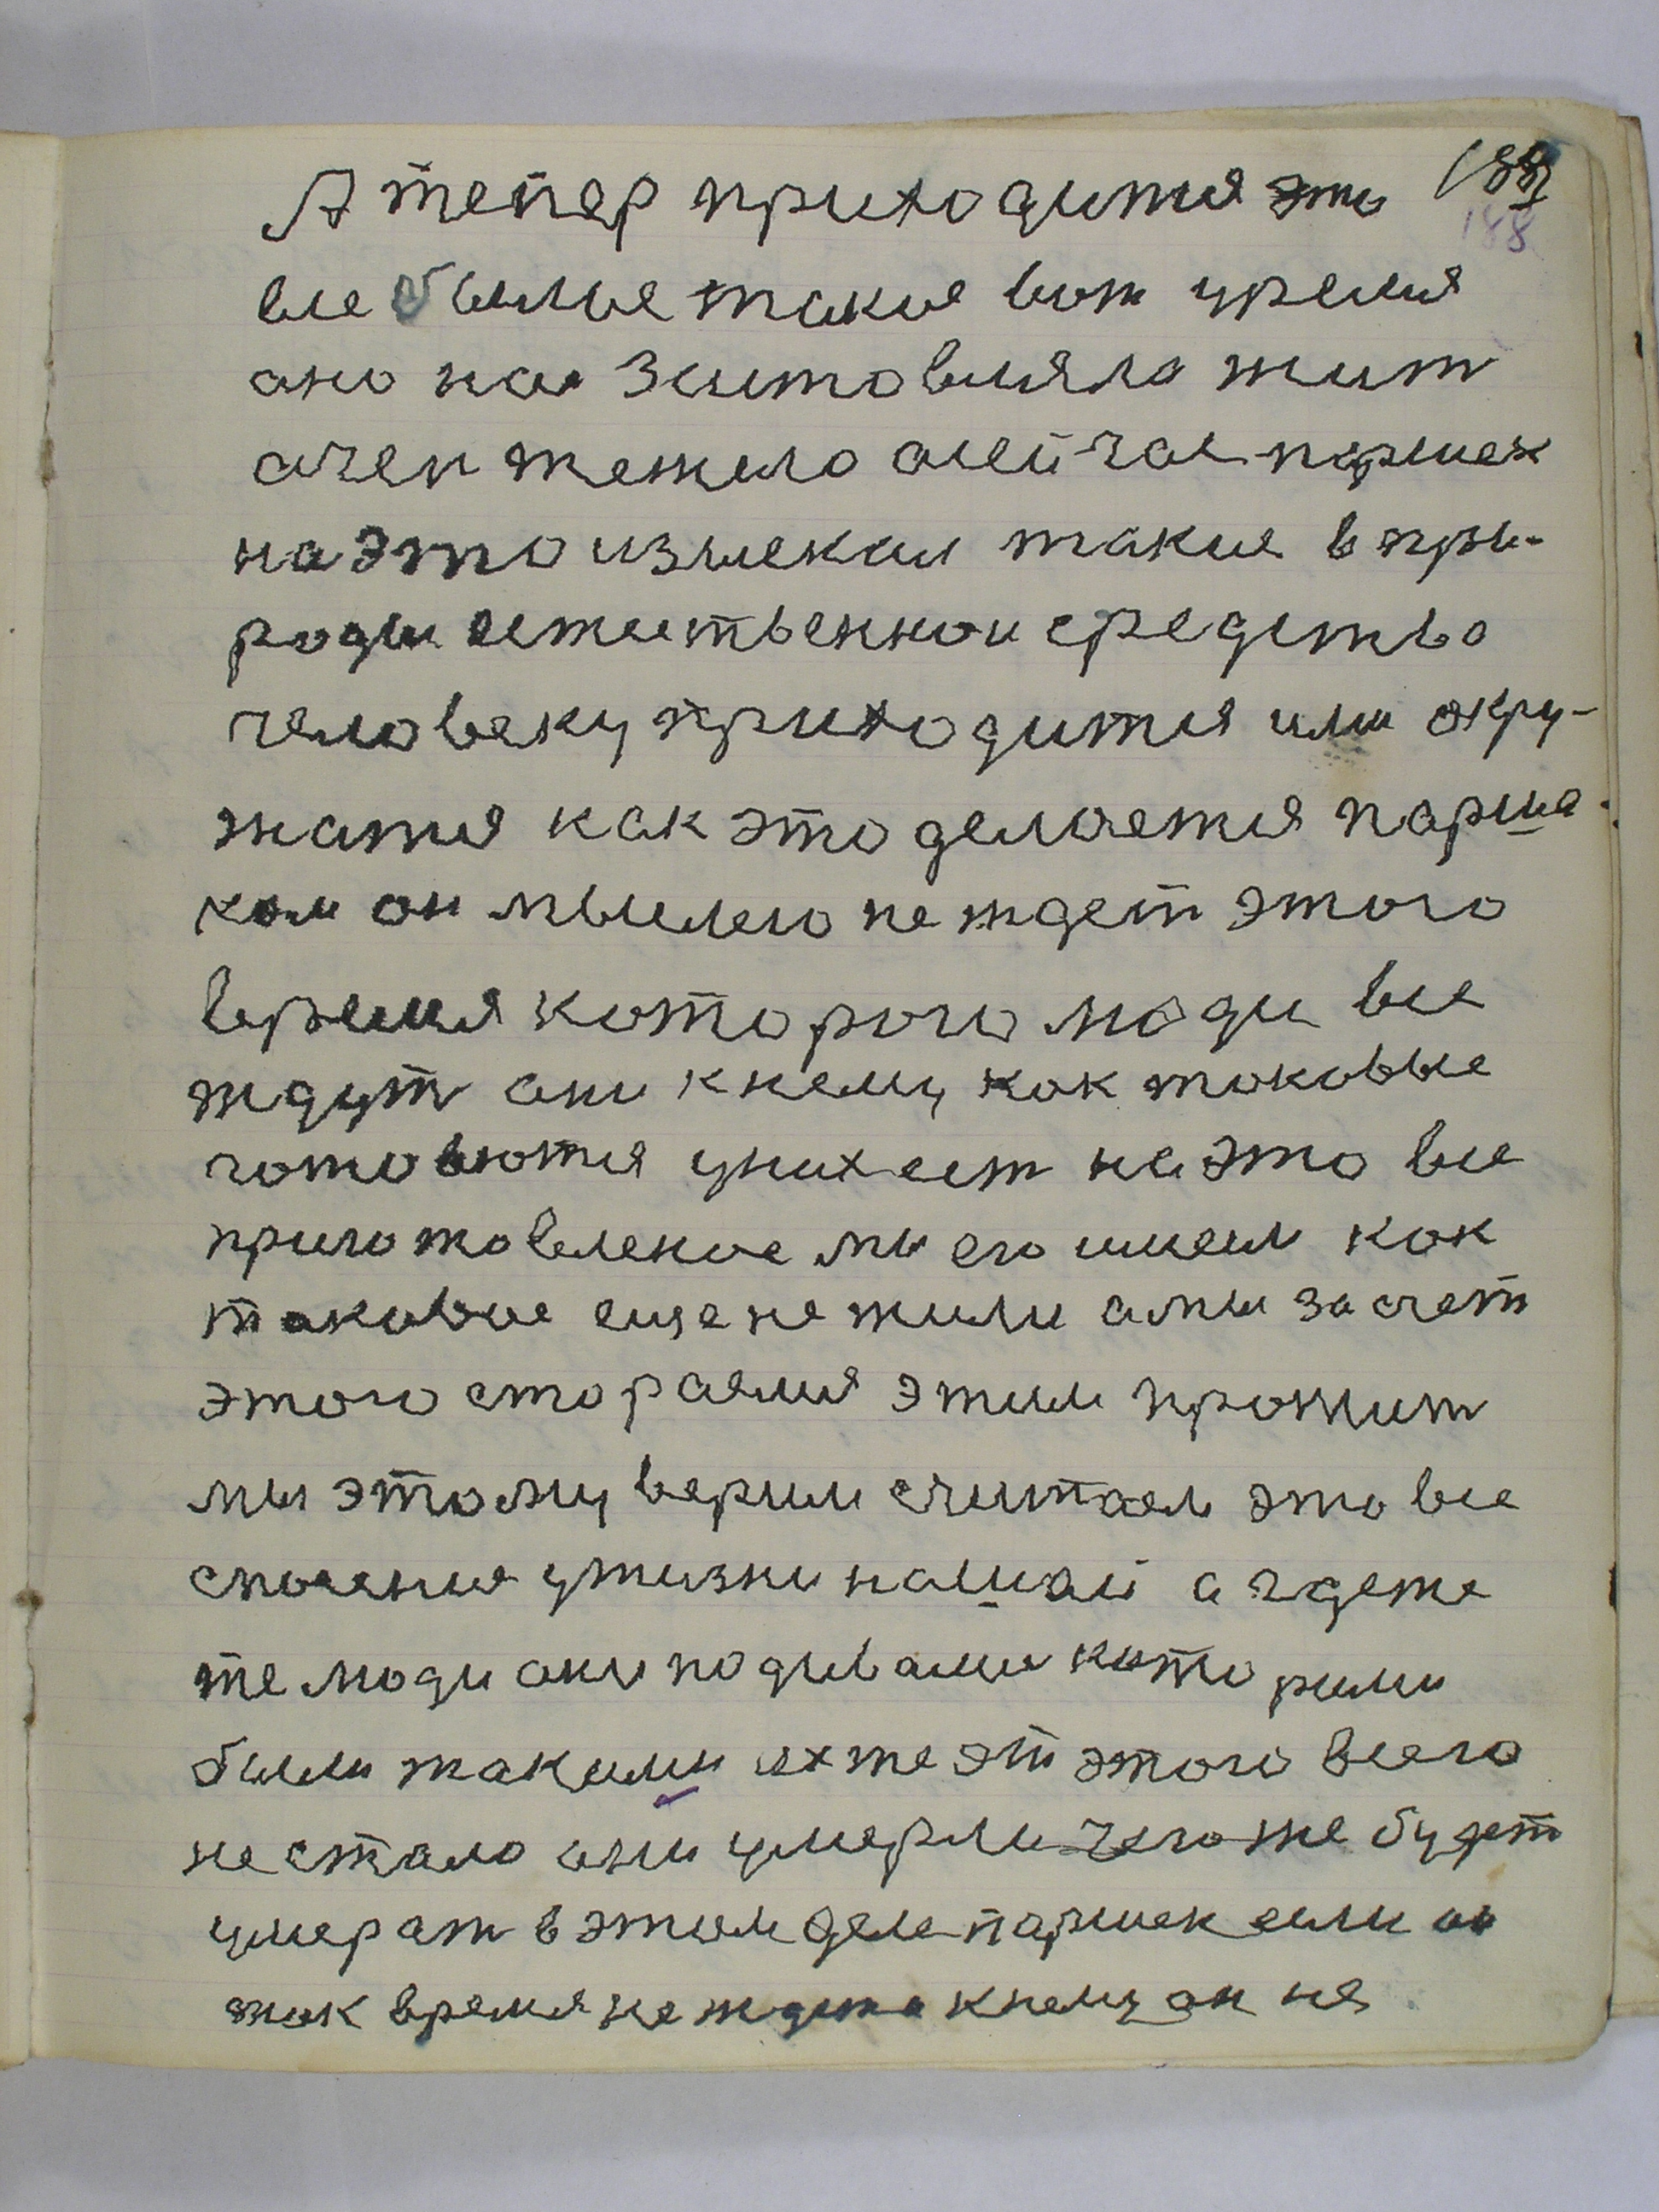 А тепер приходится это 188
188
все былое такое вот уремя
ано нас Зиставляла жит
ачен тежело асейчас паршек
на это изыскал такие в при-
роды естественнои средства
человеку приходится ими окру-
жатся как это делается парше-
ком он мыслею не ждет этого
время которого люди все
ждут они кнему как таковые
готовются уних ест на это все
приготовленое мы его имеем как
таковое еще не жили амы за счет
этого стораемся этим прожит
мы этому верим считаем это все
спосения ужизни нашаи а гдеже
те люди они подивалис которыми
были такими ихже от этого всего
не стало они умерли Чегоже будет
умерат в этом деле паршек если он
так время не ждет кнему он не